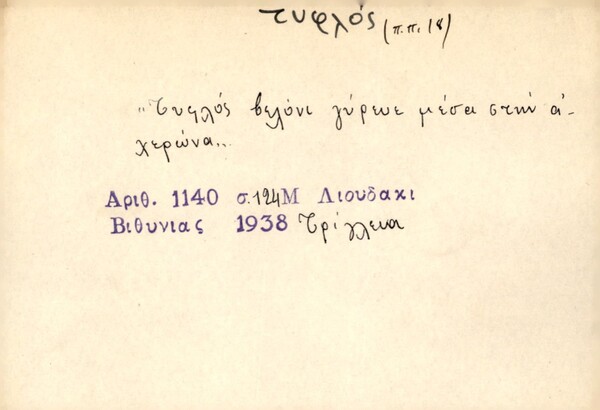 τυφλός (π.π. 18)
"Τυφλός βελόνι γύρευε μέσα στην ἀ-
χερώνα..
Αριθ. 1140 σ.124 Μ Λιουδακι
Βιθυνιας 1938 Τρίγλεια